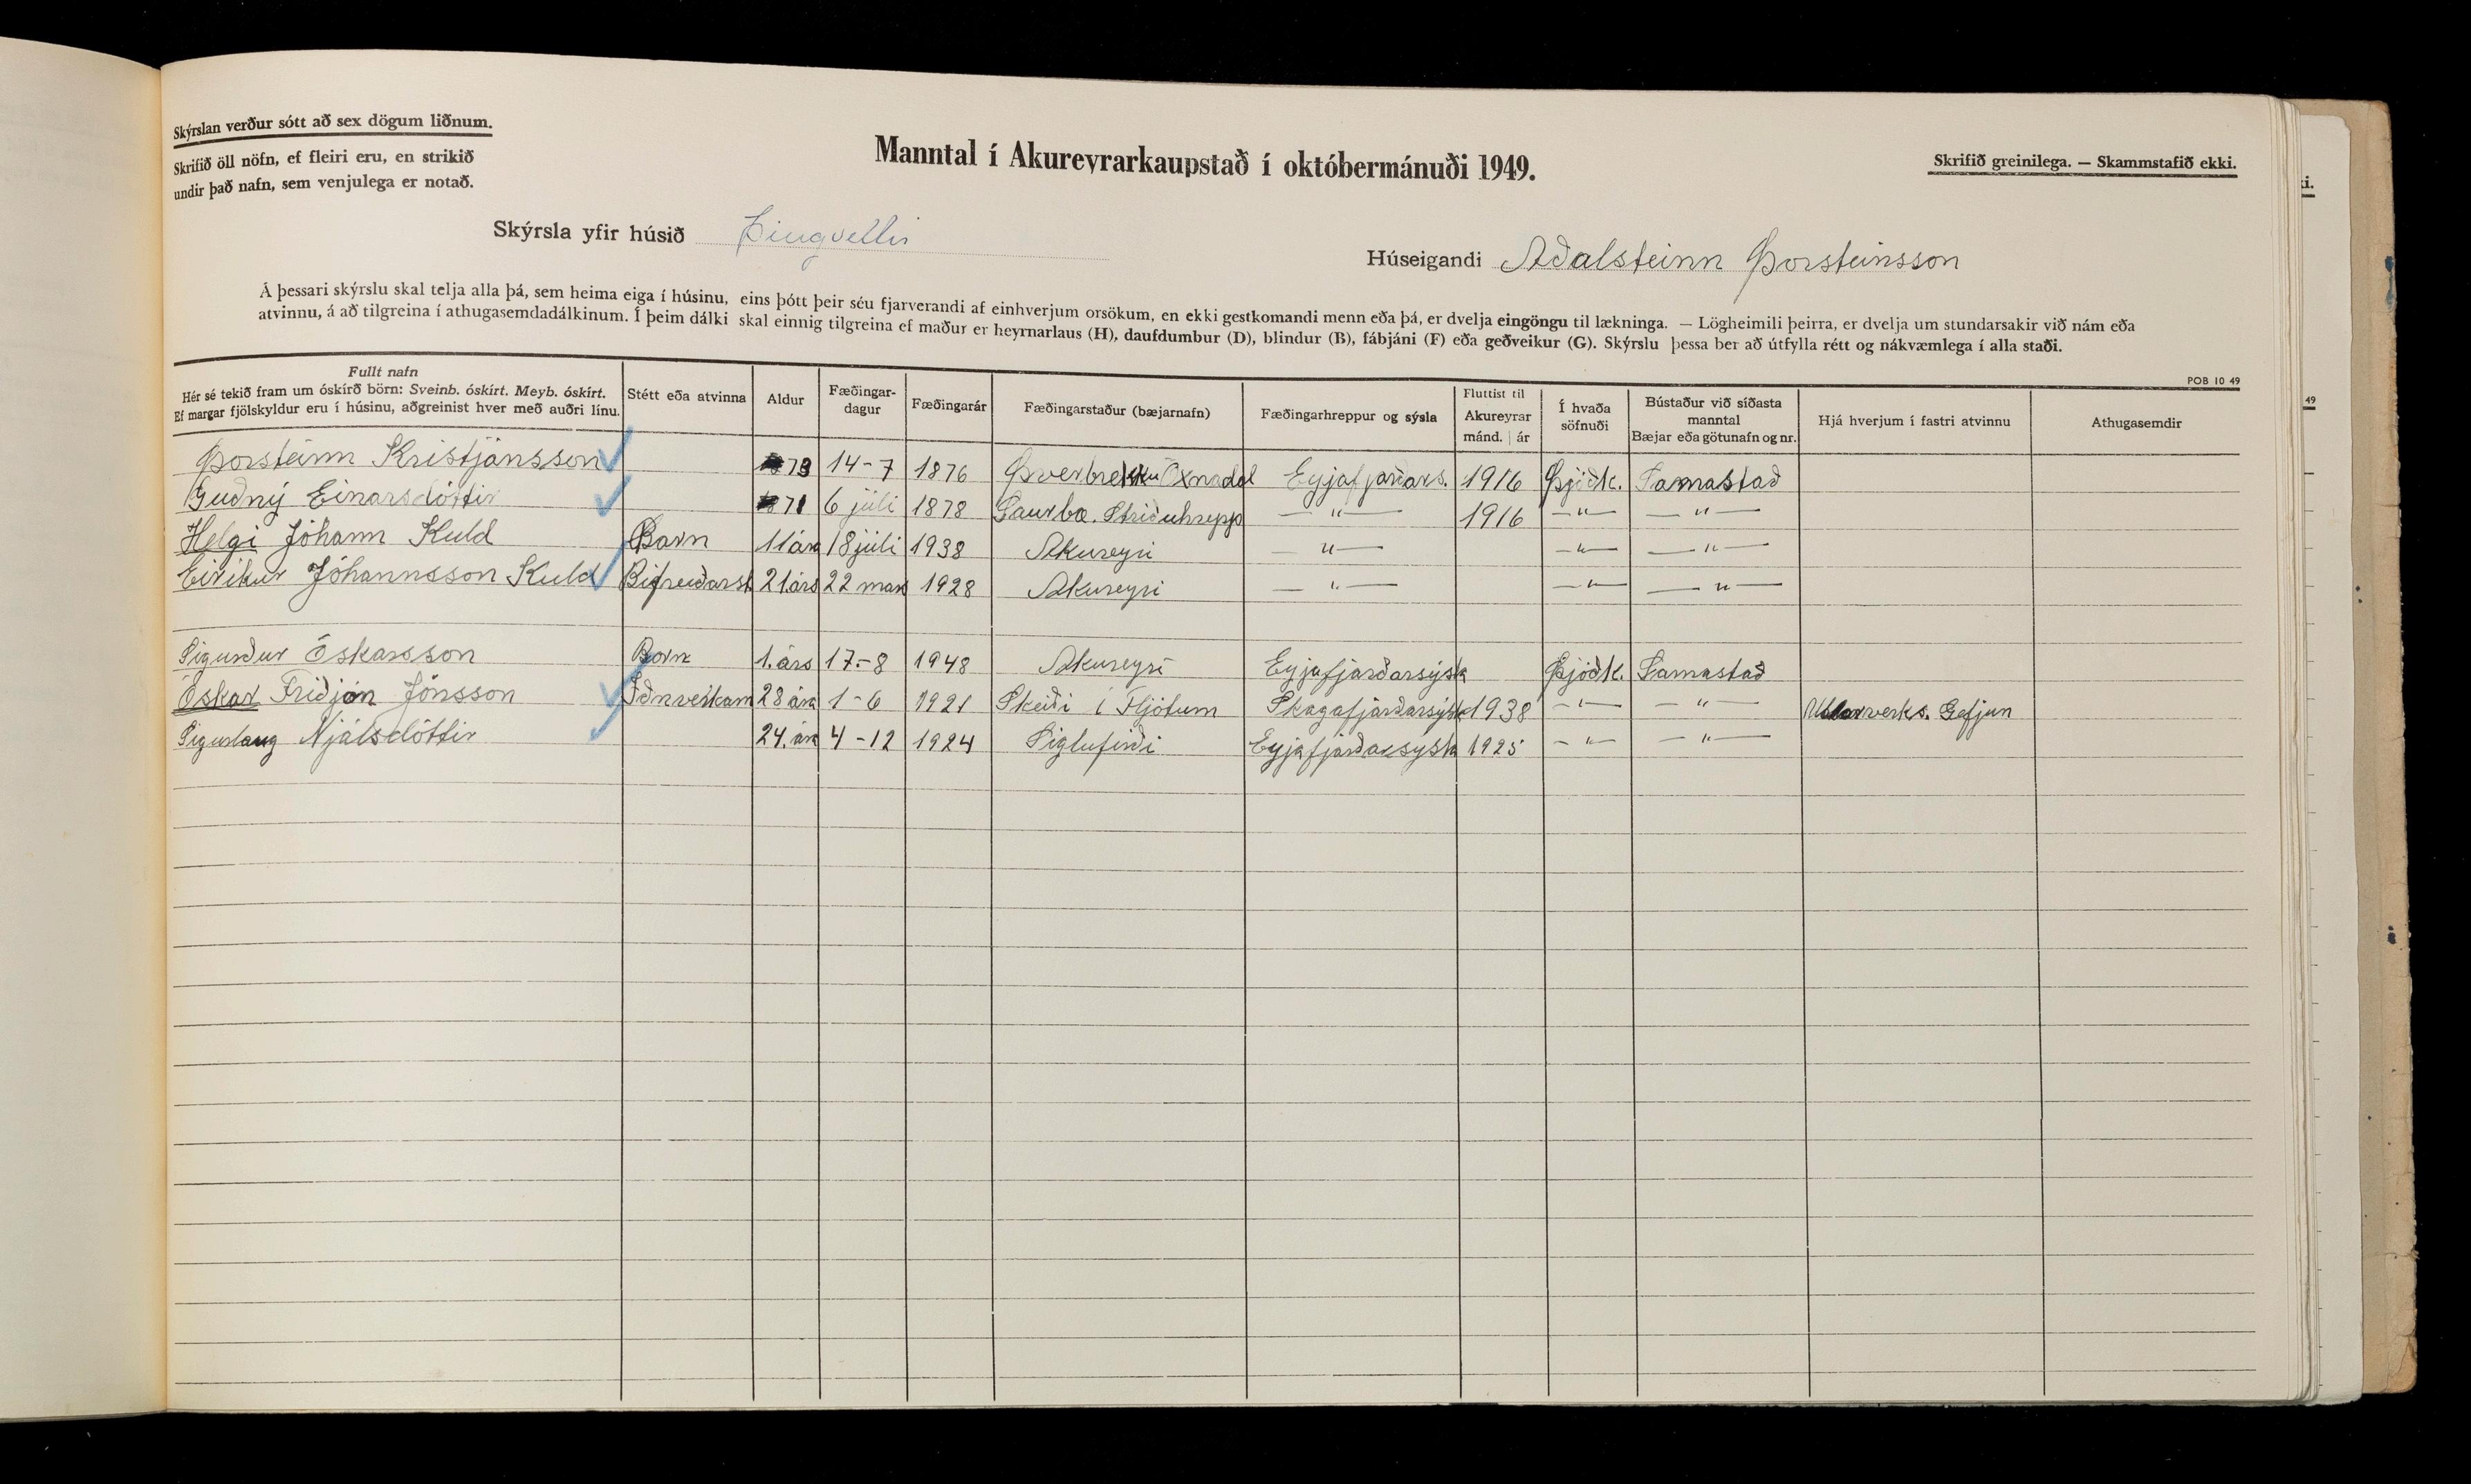 Skýrslan verður sótt að sex dögum liðnum.
Skrifið öll nöfn, ef fleiri eru, en strikið
undir það nafn, sem venjulega er notað.
Manntal í Akureyrarkaupstað í októbermánuði 1949.
Skrifið greinilega. — Skammstafið ekki.
Skýrsla yfir húsið Þingvellir
Húseigandi Aðalsteinn Þorsteinsson
Á þessari skýrslu skal telja alla þá, sem heima eiga í húsinu, eins þótt þeir séu fjarverandi af einhverjum orsökum, en ekki gestkomandi menn eða þá, er dvelja eingöngu til lækninga. — Lögheimili þeirra, er dvelja um stundarsakir við nám eða
atvinnu, á að tilgreina í athugasemdadálkinum. Í þeim dálki skal einnig tilgreina ef maður er heyrnarlaus (H), daufdumbur (D), blindur (B), fábjáni (F) eða geðveikur (G). Skýrslu þessa ber að útfylla rétt og nákvæmlega í alla staði.
POB 10 49
Fullt nafn
Hér sé tekið fram um óskírð börn: Sveinb. óskírt. Meyb. óskírt.
Ef margar fjölskyldur eru í húsinu, aðgreinist hver með auðri línu.
Stétt eða atvinna
Aldur
Fæðingar-
dagur
Fæðingarár
Fæðingarstaður (bæjarnafn)
Fæðingarhreppur og sýsla
Fluttist til
Akureyrar
mánd. | ár
Í hvaða
söfnuði
Bústaður við síðasta
manntal
Bæjar eða götunafn og nr.
Hjá hverjum í fastri atvinnu
Athugasemdir
Þorsteinn Kristjánsson 73 14-7 1876 Þverbrekku Öxnadal Eyjafjarðars. 1916 Þjóðk. Samastað
Guðný Einarsdóttir 71 6 júli 1878 Saurbæ. — " — 1916 — " — — " —
Helgi Jóhann Kuld Barn 11 ára 18 júli 1938 Akureyri — " — — " — — " —
Eiríkur Jóhannsson Kuld Bifreiðarst 21 árs 22 mars 1928 Akureyri — " — — " — — " —
Sigurður Óskarsson Barn 1. árs 17.-8 1948 Akureyri Eyjafjarðarsýsla Þjóðk. Samastað
Óskar Friðjón Jónsson Iðnverkam 28 ára 1-6 1921 Skeiði í Fljótum Skagafjarðarsýsla 1938 — " — — " — Ullarverks. Gefjun
Sigurlaug Njálsdóttir 24. ára 4-12 1924 Siglufirði Eyjafjarðarsýsla 1925 — " — — " —